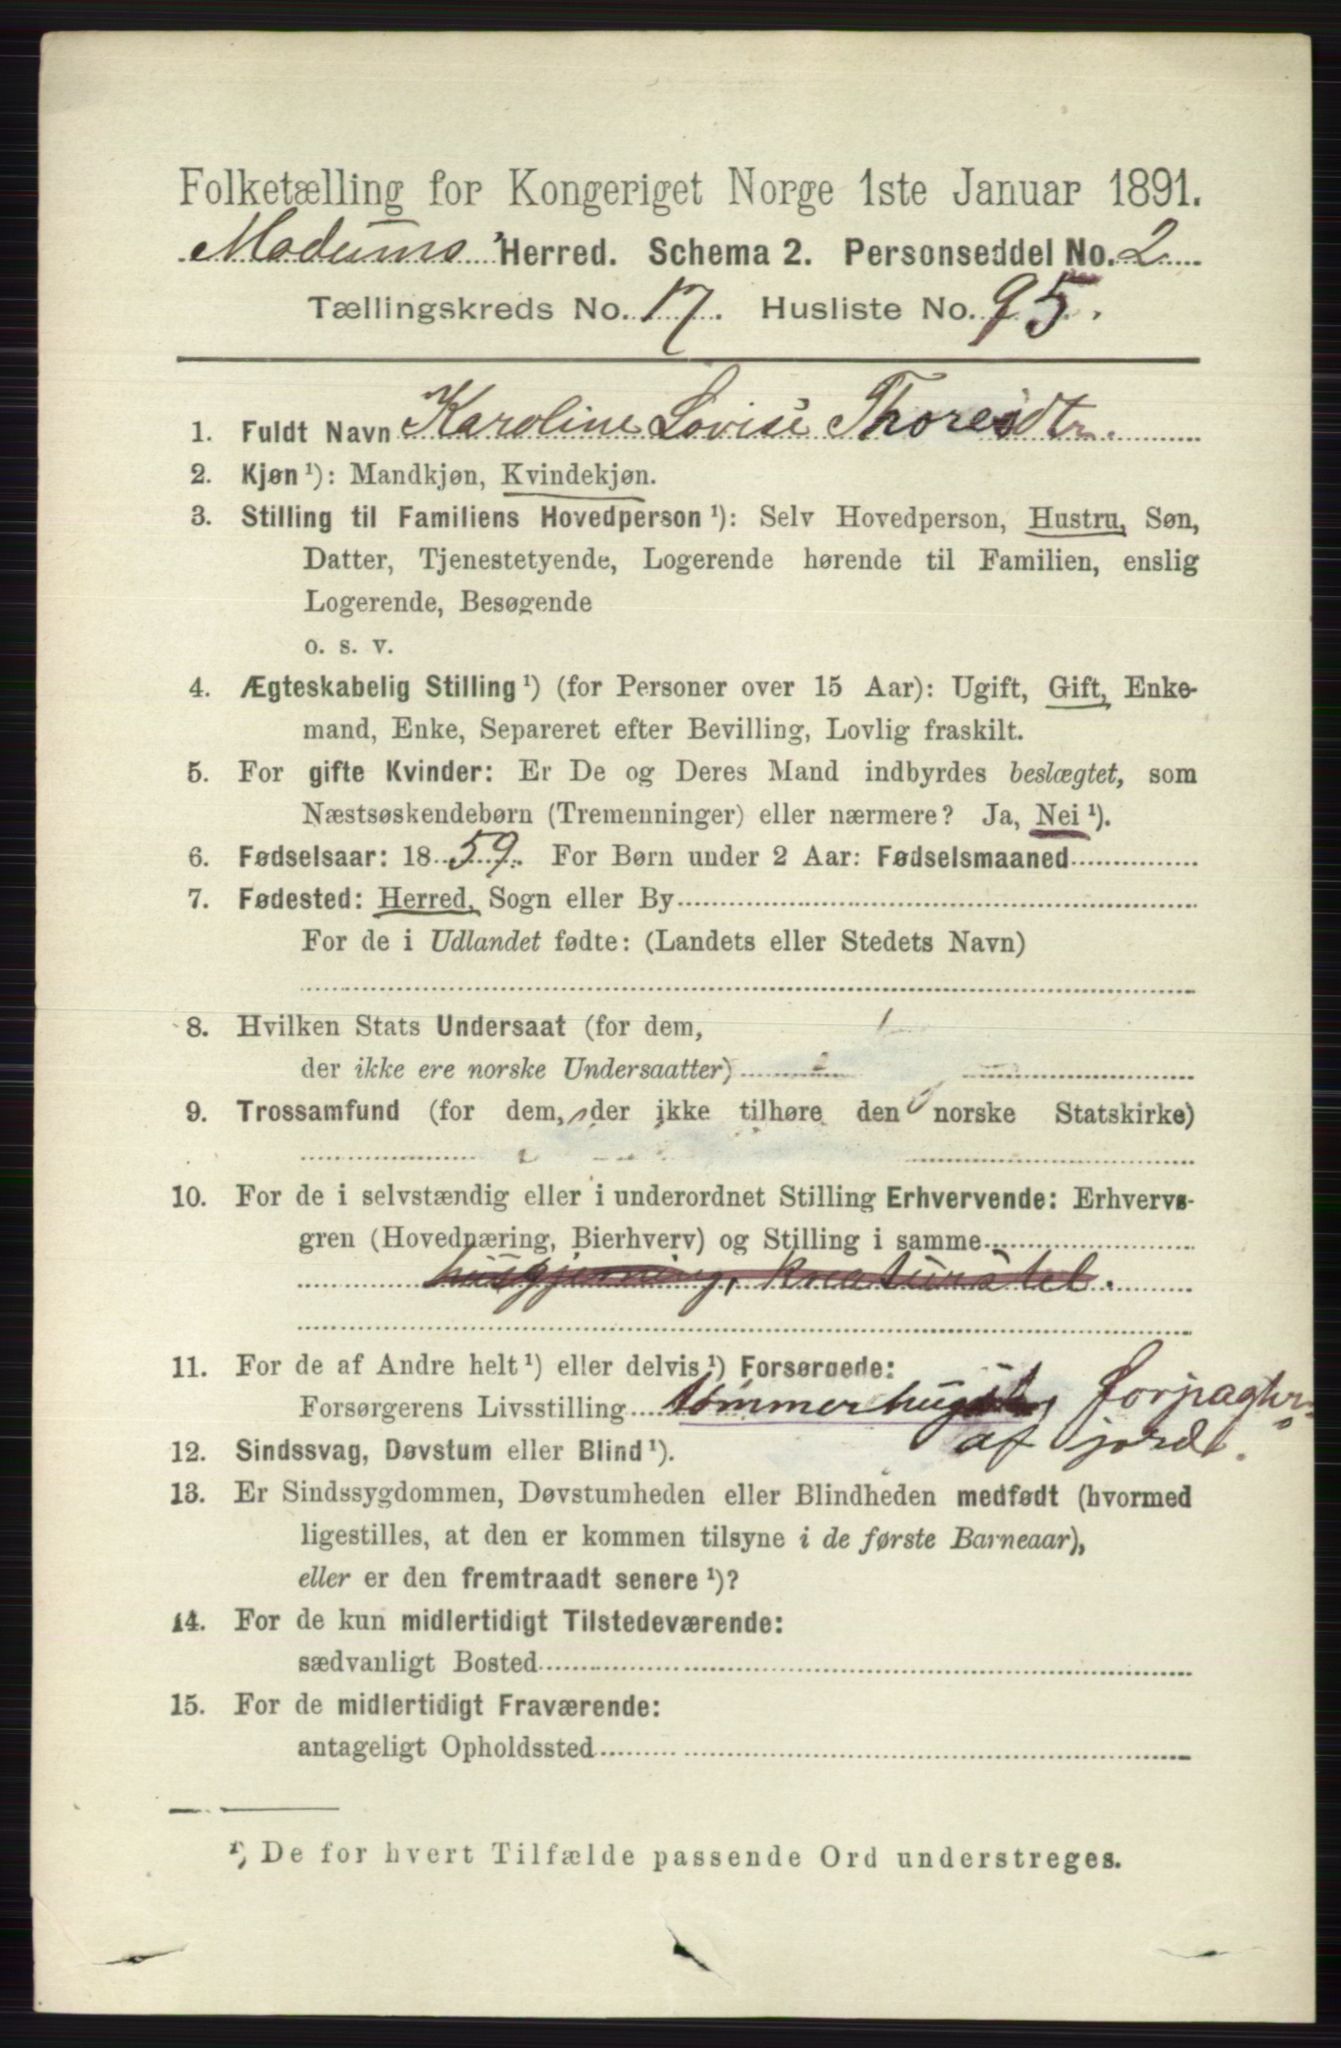 Folketælling for Kongeriget Norge 1ste Januar 1891.
Modums Herred. Schema 2. Personseddel No. 2
Tællingskreds No. 17. Husliste No. 95.
1. Fuldt Navn Karoline Lovise Thoresdtr.
2. Kjøn ¹): Mandkjøn, Kvindekjøn.
3. Stilling til Familiens Hovedperson ¹): Selv Hovedperson, Hustru, Søn,
Datter, Tjenestetyende, Logerende hørende til Familien, enslig
Logerende, Besøgende
o. s. v.
4. Ægteskabelig Stilling ¹) (for Personer over 15 Aar): Ugift, Gift, Enke-
mand, Enke, Separeret efter Bevilling, Lovlig fraskilt.
5. For gifte Kvinder: Er De og Deres Mand indbyrdes beslægtet, som
Næstsøskendebørn (Tremenninger) eller nærmere? Ja, Nei ¹).
6. Fødselsaar: 1859. For Børn under 2 Aar: Fødselsmaaned
7. Fødested: Herred, Sogn eller By
For de i Udlandet fødte: (Landets eller Stedets Navn)
8. Hvilken Stats Undersaat (for dem,
der ikke ere norske Undersaatter)
9. Trossamfund (for dem, der ikke tilhøre den norske Statskirke)
10. For de i selvstændig eller i underordnet Stilling Erhvervende: Erhvervs-
gren (Hovednæring, Bierhverv) og Stilling i samme
husgjerning, kreaturstel.
11. For de af Andre helt ¹) eller delvis ¹) Forsørgede:
Forsørgerens Livsstilling tømmerhugst, forpagter
af jord.
12. Sindssvag, Døvstum eller Blind ¹).
13. Er Sindssygdommen, Døvstumheden eller Blindheden medfødt (hvormed
ligestilles, at den er kommen tilsyne i de første Barneaar),
eller er den fremtraadt senere ¹)?
14. For de kun midlertidigt Tilstedeværende:
sædvanligt Bosted
15. For de midlertidigt Fraværende:
antageligt Opholdssted
¹) De for hvert Tilfælde passende Ord understreges.